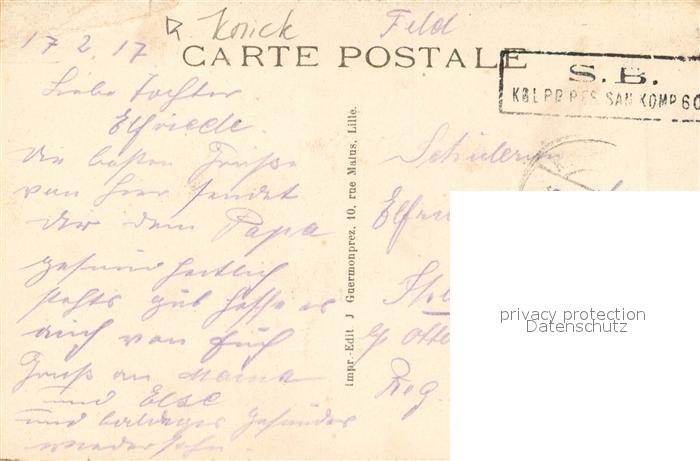 17 2. 17 Korick Feld
CARTE POSTALE
S. B.
KGL PR RES SAN KOMP 60
Liebe Tochter
Elfriede.
die besten Grüße
von hier sendet
dir dein Papa
gesundheitlich
stehts gut hoffe es
auch von Euch
Gruß an Mama
und Else
und baldiges gesundes
wiedersehn.
Impr.-Edit J Guermonprez, 10, rue Matus, Lille.
Schülerin
Reg.
privacy protection
Datenschutz